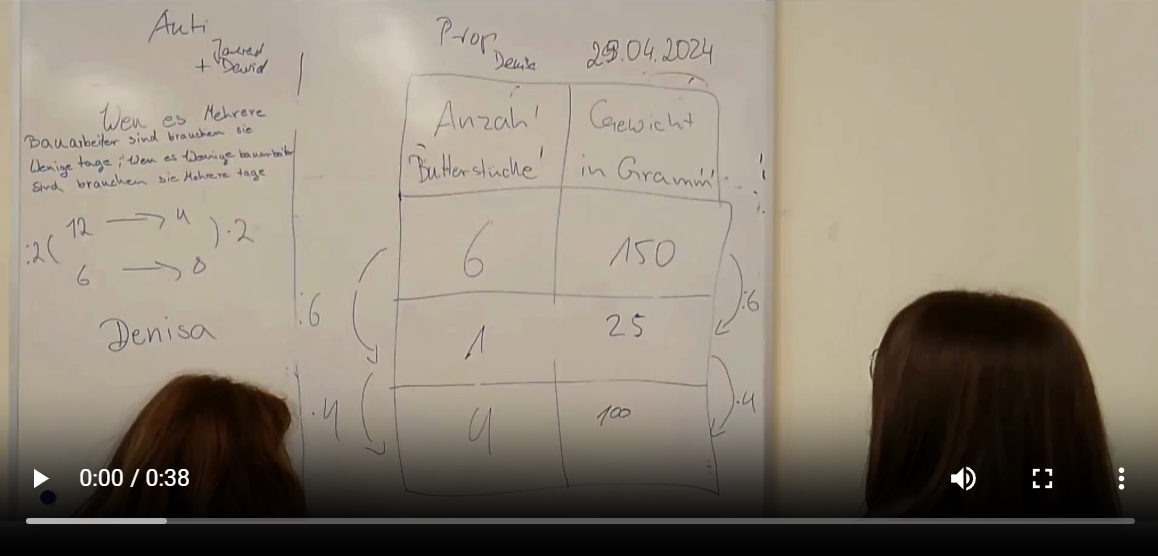 Auti
Jawed
+ Dewid
Wen es Mehrere
Bauarbeiter sind brauchen sie
Wenige tage, Wen es Wenige bauarbeiter
sind brauchen sie Mehrere tage
:2( 12 → 4 ) ·2
6 → 8
Denisa
Prop
Denise
29.04.2024
Anzahl
Butterstücke
Gewicht
in Gramm
6 150
:6 :6
1 25
·4 ·4
4 100
0:00 / 0:38